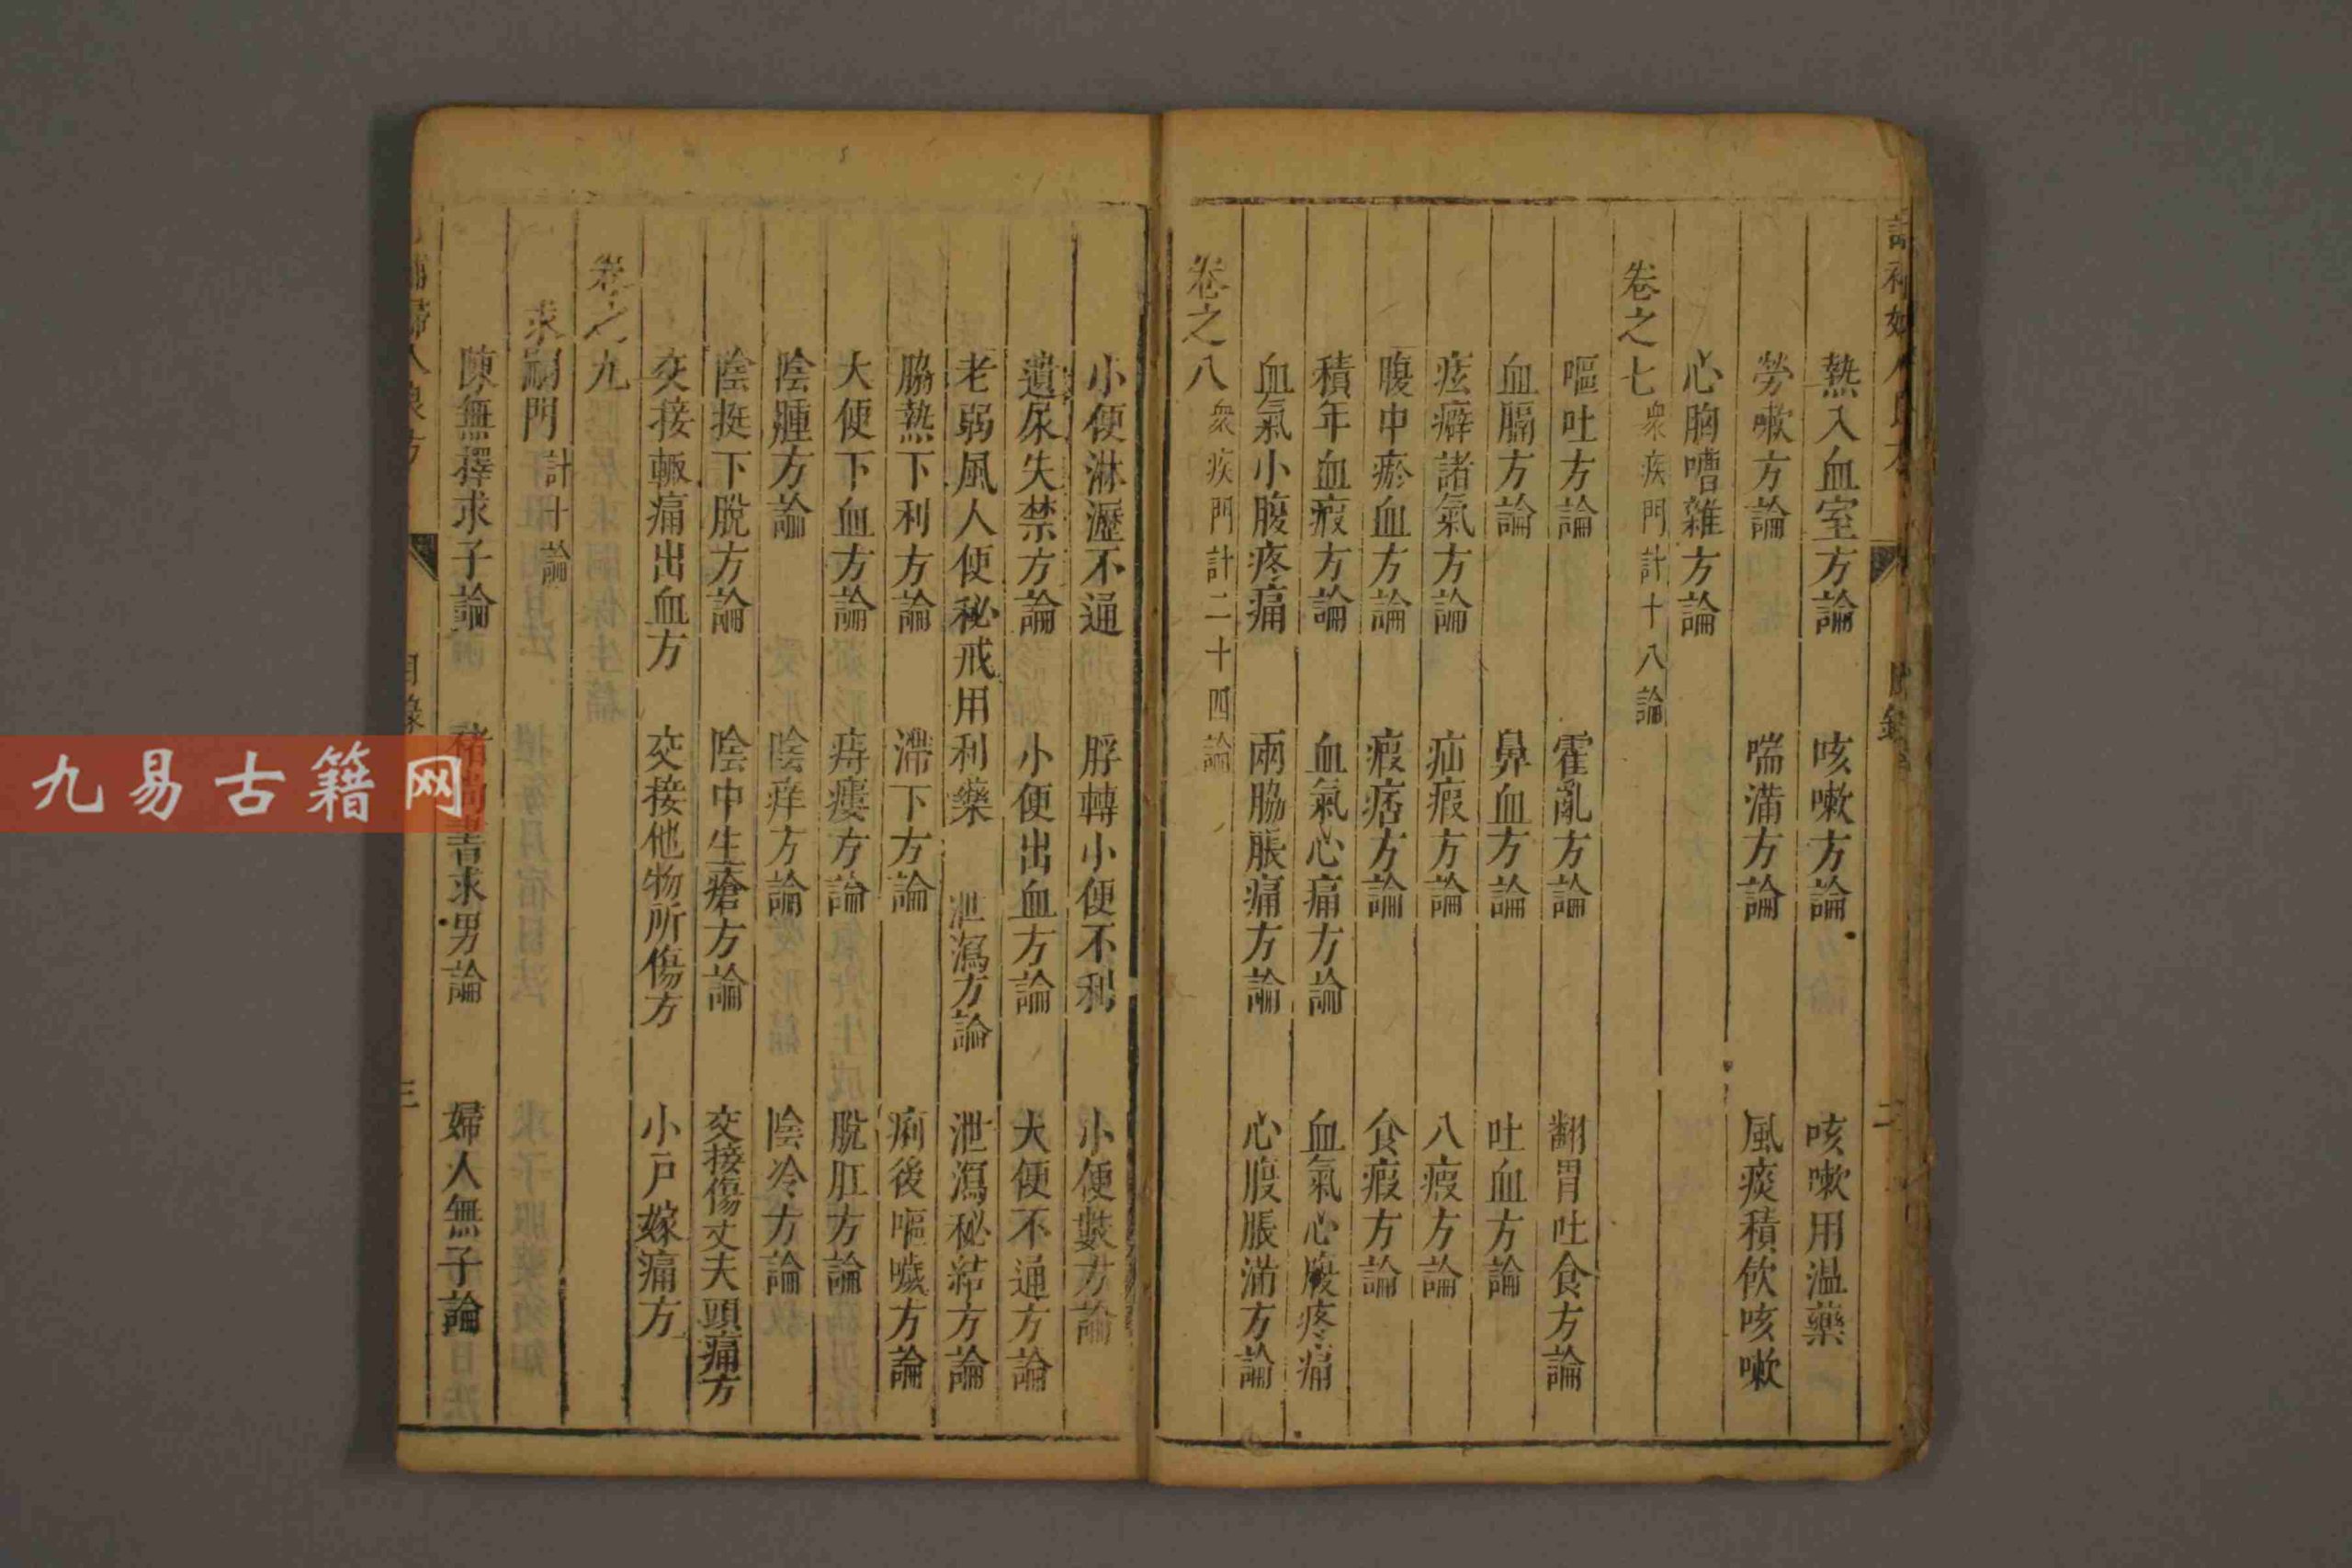 熱入血室方論　咳嗽方論　咳嗽用温藥
勞嗽方論　喘滿方論　風痰積飲咳嗽
心胸嘈雜方論
卷之七　衆疾門計十八論
嘔吐方論　霍亂方論　翻胃吐食方論
血膈方論　鼻血方論　吐血方論
痃癖諸氣方論　疝瘕方論　八瘕方論
腹中瘀血方論　瘕痞方論　食瘕方論
積年血瘕方論　血氣心痛方論　血氣心腹疼痛
血氣小腹疼痛　兩脇脹痛方論　心腹脹滿方論
卷之八　衆疾門計二十四論
小便淋瀝不通　脬轉小便不利　小便數方論
遺尿失禁方論　小便出血方論　大便不通方論
老弱風人便秘戒用利藥　泄瀉方論　泄瀉秘結方論
脇熱下利方論　滯下方論　痢後嘔噦方論
大便下血方論　痔瘻方論　脫肛方論
陰腫方論　陰痒方論　陰冷方論
陰挺下脫方論　陰中生瘡方論　交接傷丈夫頭痛方
交接輙痛出血方　交接他物所傷方　小戸嫁痛方
卷之九
求嗣門　計十論
陳無擇求子論　褚尚書求男論　婦人無子論
目錄
二
三
九易古籍网